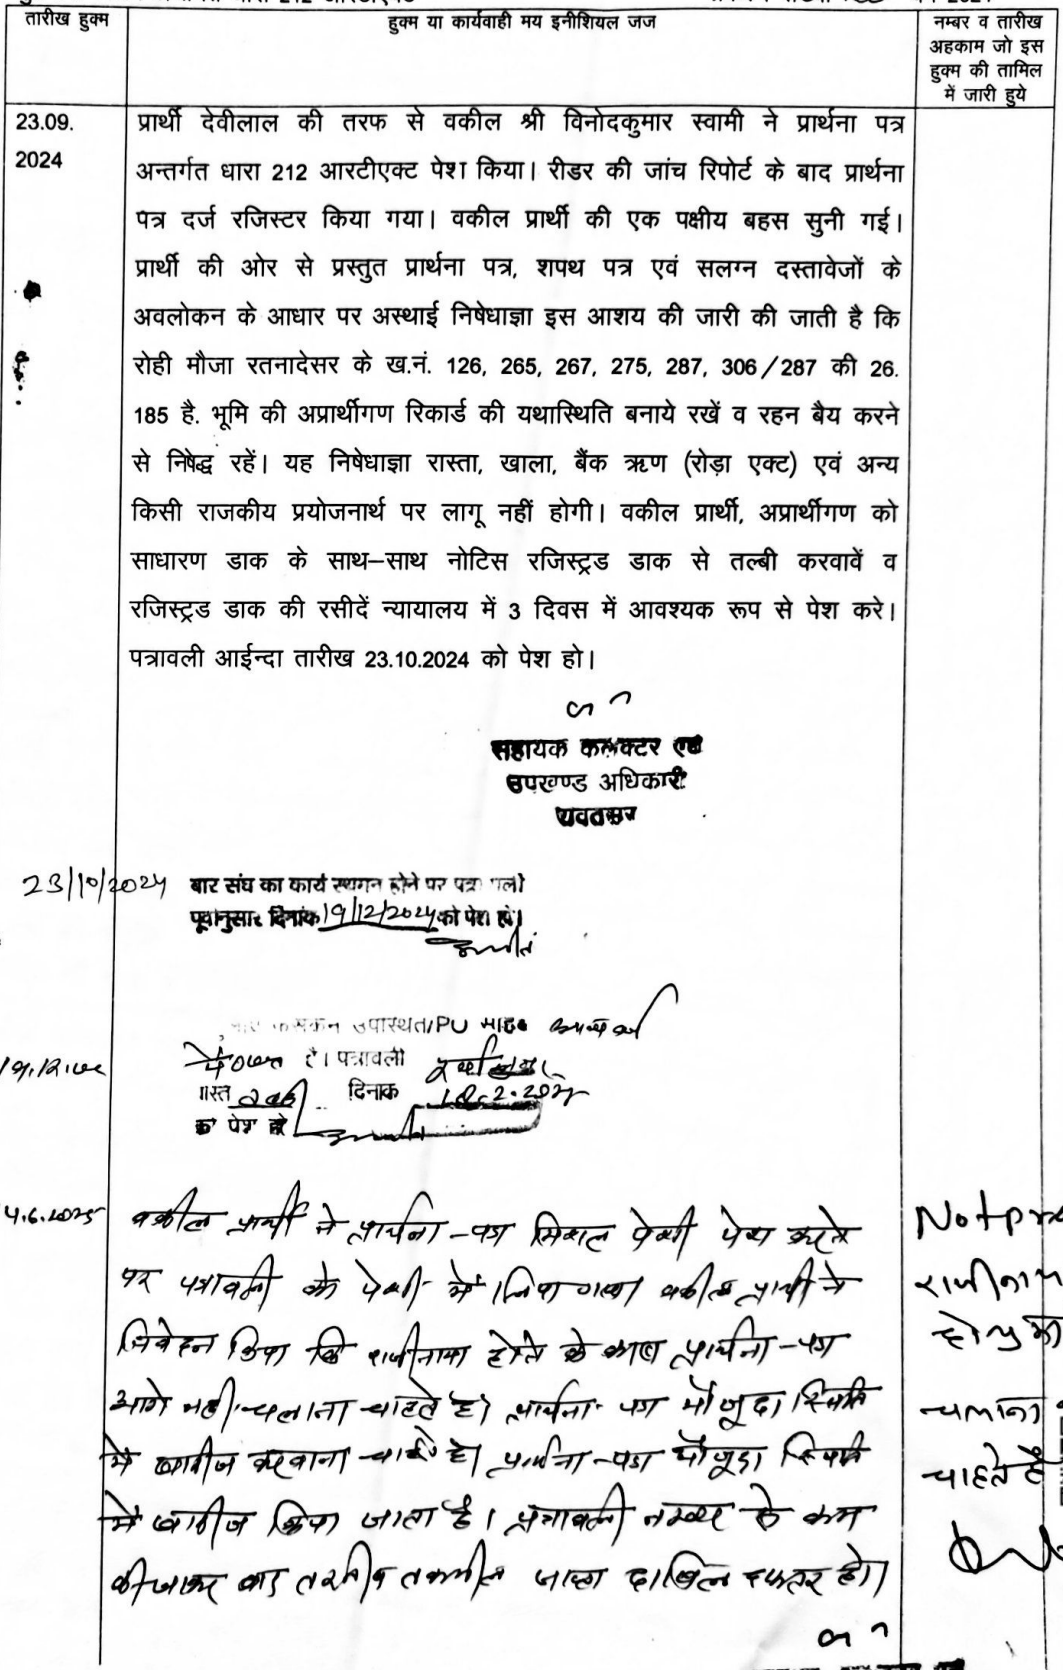 धारा 212 आरटीएक्ट
तारीख हुक्म
हुक्म या कार्यवाही मय इनीशियल जज
नम्बर व तारीख
अहकाम जो इस
हुक्म की तामिल
में जारी हुये
23.09.
2024
प्रार्थी देवीलाल की तरफ से वकील श्री विनोदकुमार स्वामी ने प्रार्थना पत्र
अन्तर्गत धारा 212 आरटीएक्ट पेश किया। रीडर की जांच रिपोर्ट के बाद प्रार्थना
पत्र दर्ज रजिस्टर किया गया। वकील प्रार्थी की एक पक्षीय बहस सुनी गई।
प्रार्थी की ओर से प्रस्तुत प्रार्थना पत्र, शपथ पत्र एवं सलग्न दस्तावेजों के
अवलोकन के आधार पर अस्थाई निषेधाज्ञा इस आशय की जारी की जाती है कि
रोही मौजा रतनादेसर के ख.नं. 126, 265, 267, 275, 287, 306/287 की 26.
185 है. भूमि की अप्रार्थीगण रिकार्ड की यथास्थिति बनाये रखें व रहन बैय करने
से निषेद्ध रहें। यह निषेधाज्ञा रास्ता, खाला, बैंक ऋण (रोड़ा एक्ट) एवं अन्य
किसी राजकीय प्रयोजनार्थ पर लागू नहीं होगी। वकील प्रार्थी, अप्रार्थीगण को
साधारण डाक के साथ–साथ नोटिस रजिस्ट्रड डाक से तल्बी करवावें व
रजिस्ट्रड डाक की रसीदें न्यायालय में 3 दिवस में आवश्यक रूप से पेश करे।
पत्रावली आईन्दा तारीख 23.10.2024 को पेश हो।
सहायक कलक्टर एवं
उपखण्ड अधिकारी
23/10/2024 बार संघ का कार्य स्थगन होने पर पत्रावली
पूर्वानुसार दिनांक 19/12/2024 को पेश हो।
उपस्थित/PO
है। पत्रावली
वास्ते दिनांक
को पेश हो
4.6.2025 वकील प्रार्थी ने प्रार्थना-पत्र मिसल पेशी पेश करने
पर पत्रावली को पेशी में लिया गया। वकील प्रार्थी ने
निवेदन किया कि राजीनामा होने के कारण प्रार्थना-पत्र
आगे नहीं चलाना चाहते है। प्रार्थना-पत्र मौजूदा स्थिति
में खारीज करवाना चाहते है। प्रार्थना-पत्र मौजूदा स्थिति
में खारीज किया जाता है। पत्रावली नम्बर से कम
की जाकर बाद दाखिल दफ्तर हो।
Not
चलाना
चाहते है